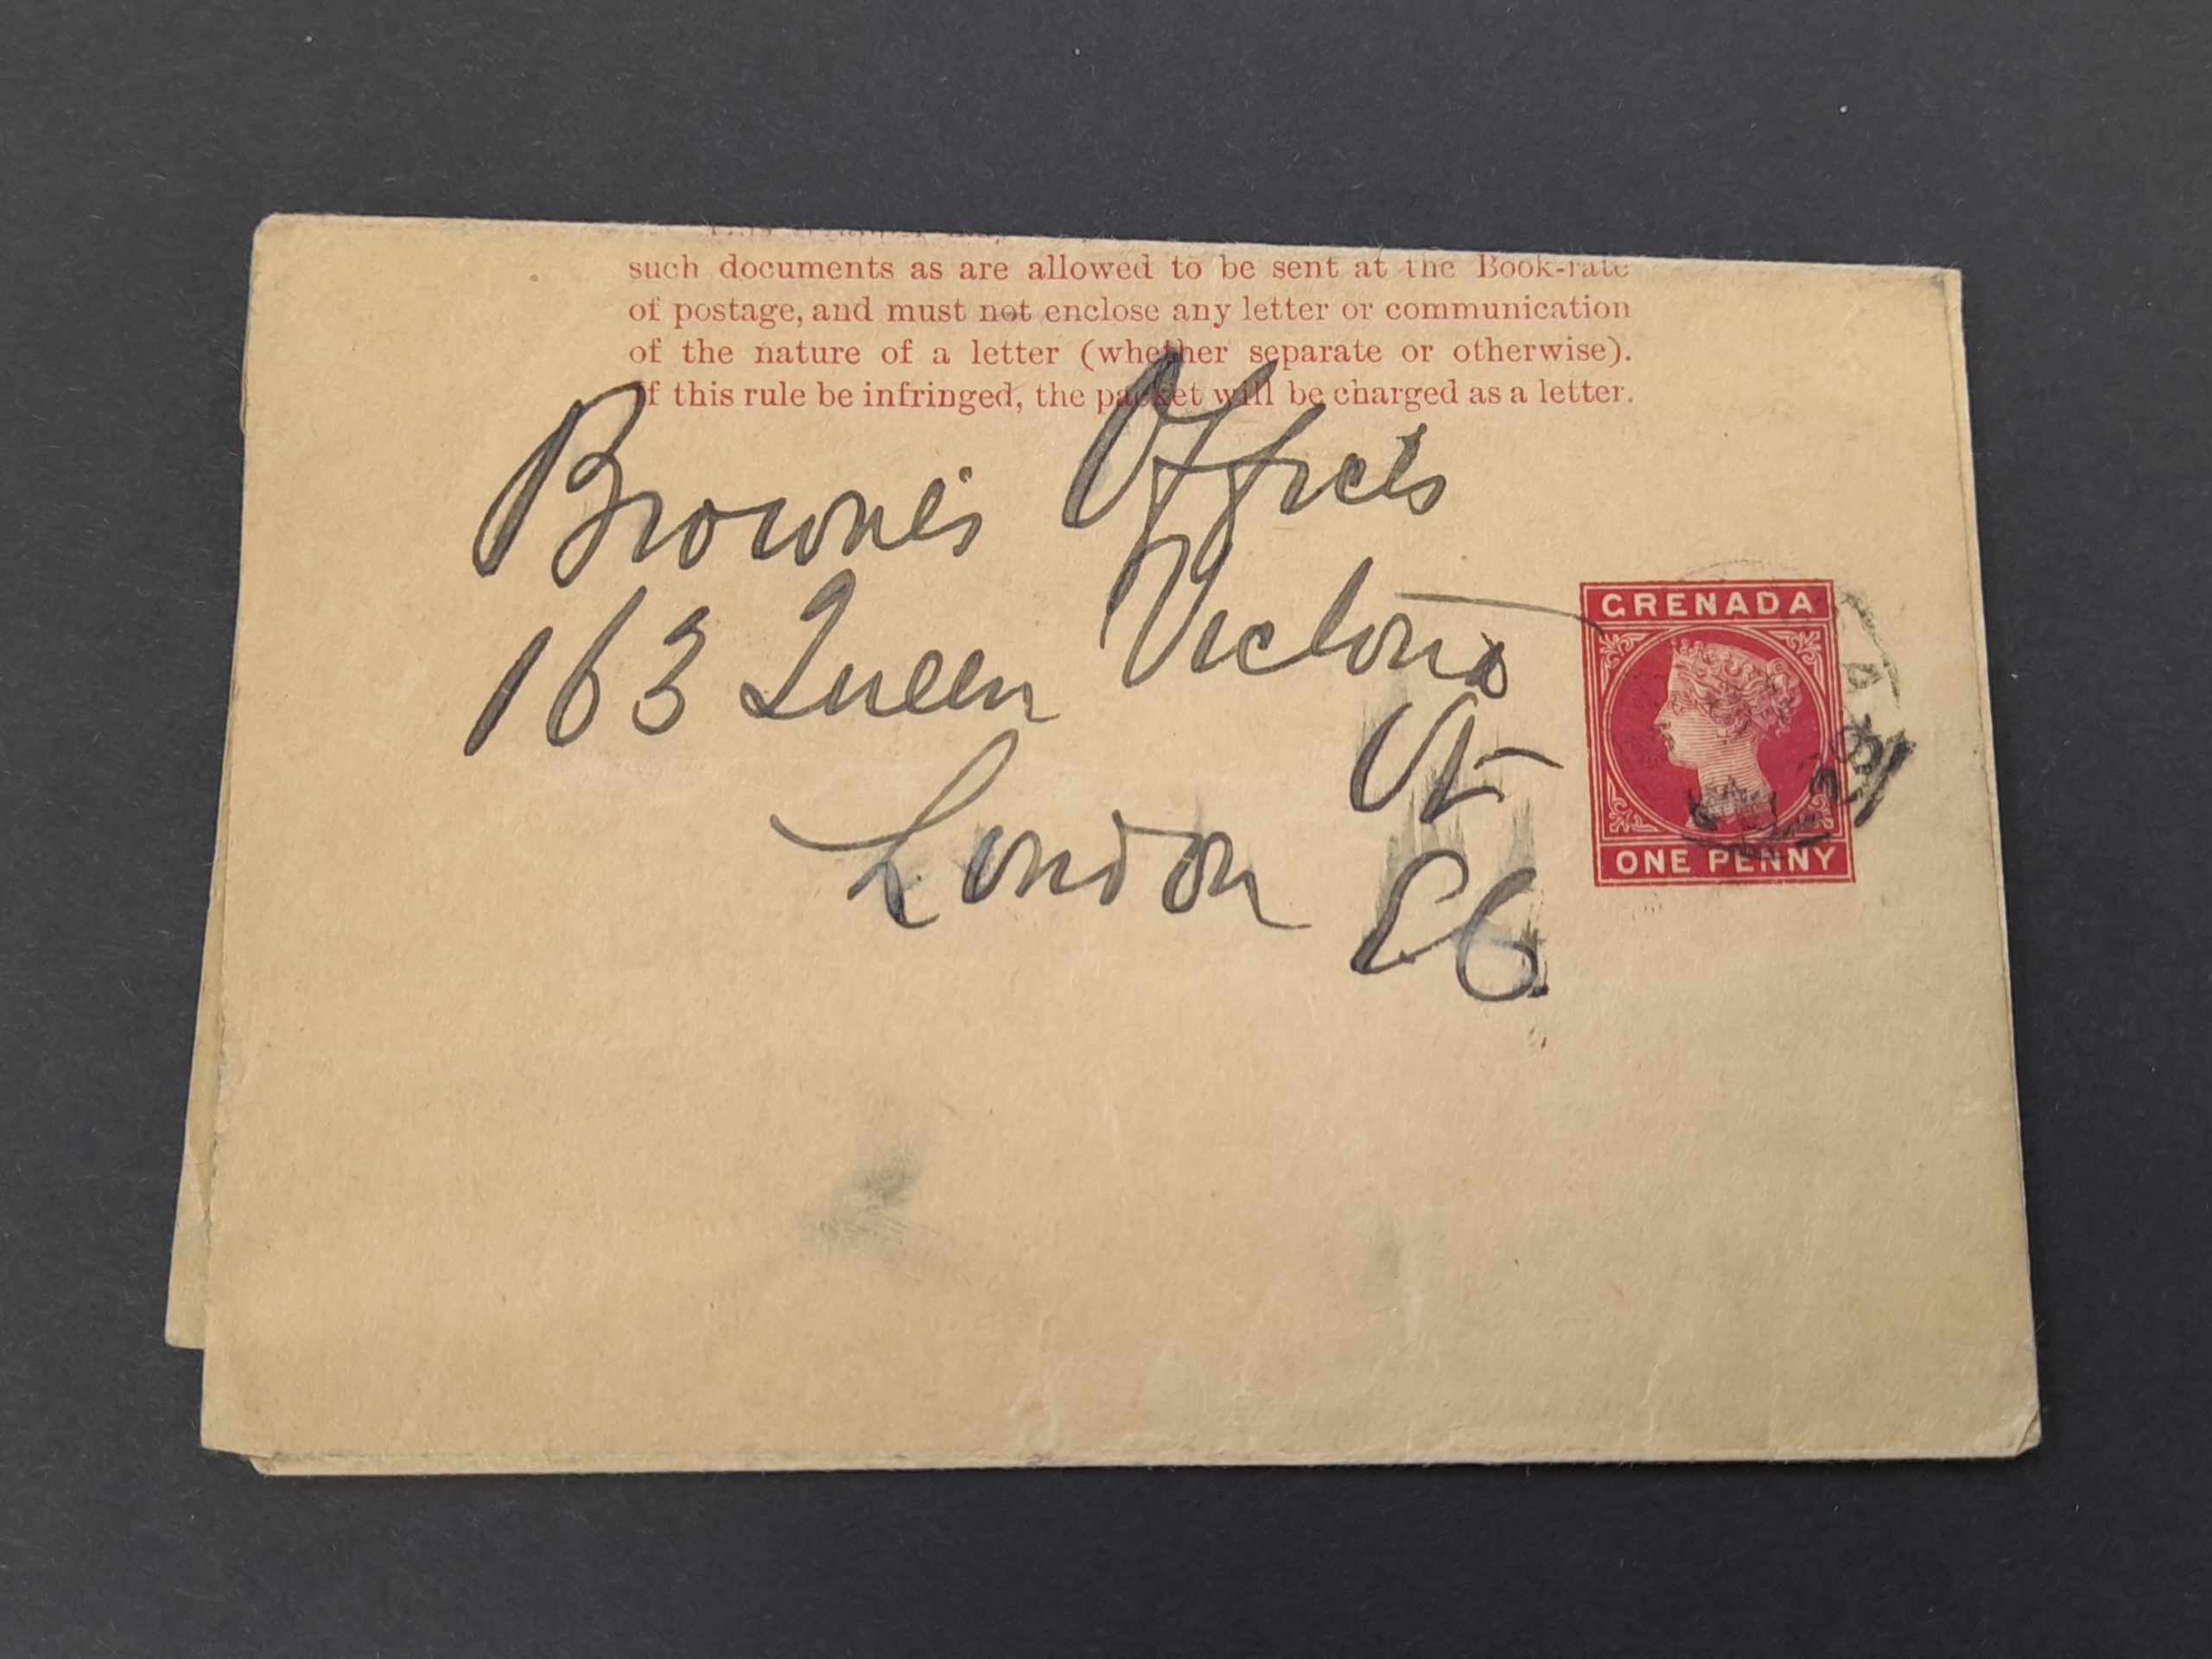 such documents as are allowed to be sent at the Book-rate
of postage, and must not enclose any letter or communication
of the nature of a letter (whether separate or otherwise).
If this rule be infringed, the packet will be charged as a letter.
Browne's Offices
163 Queen Victoria
St
London E.C.
GRENADA
ONE PENNY